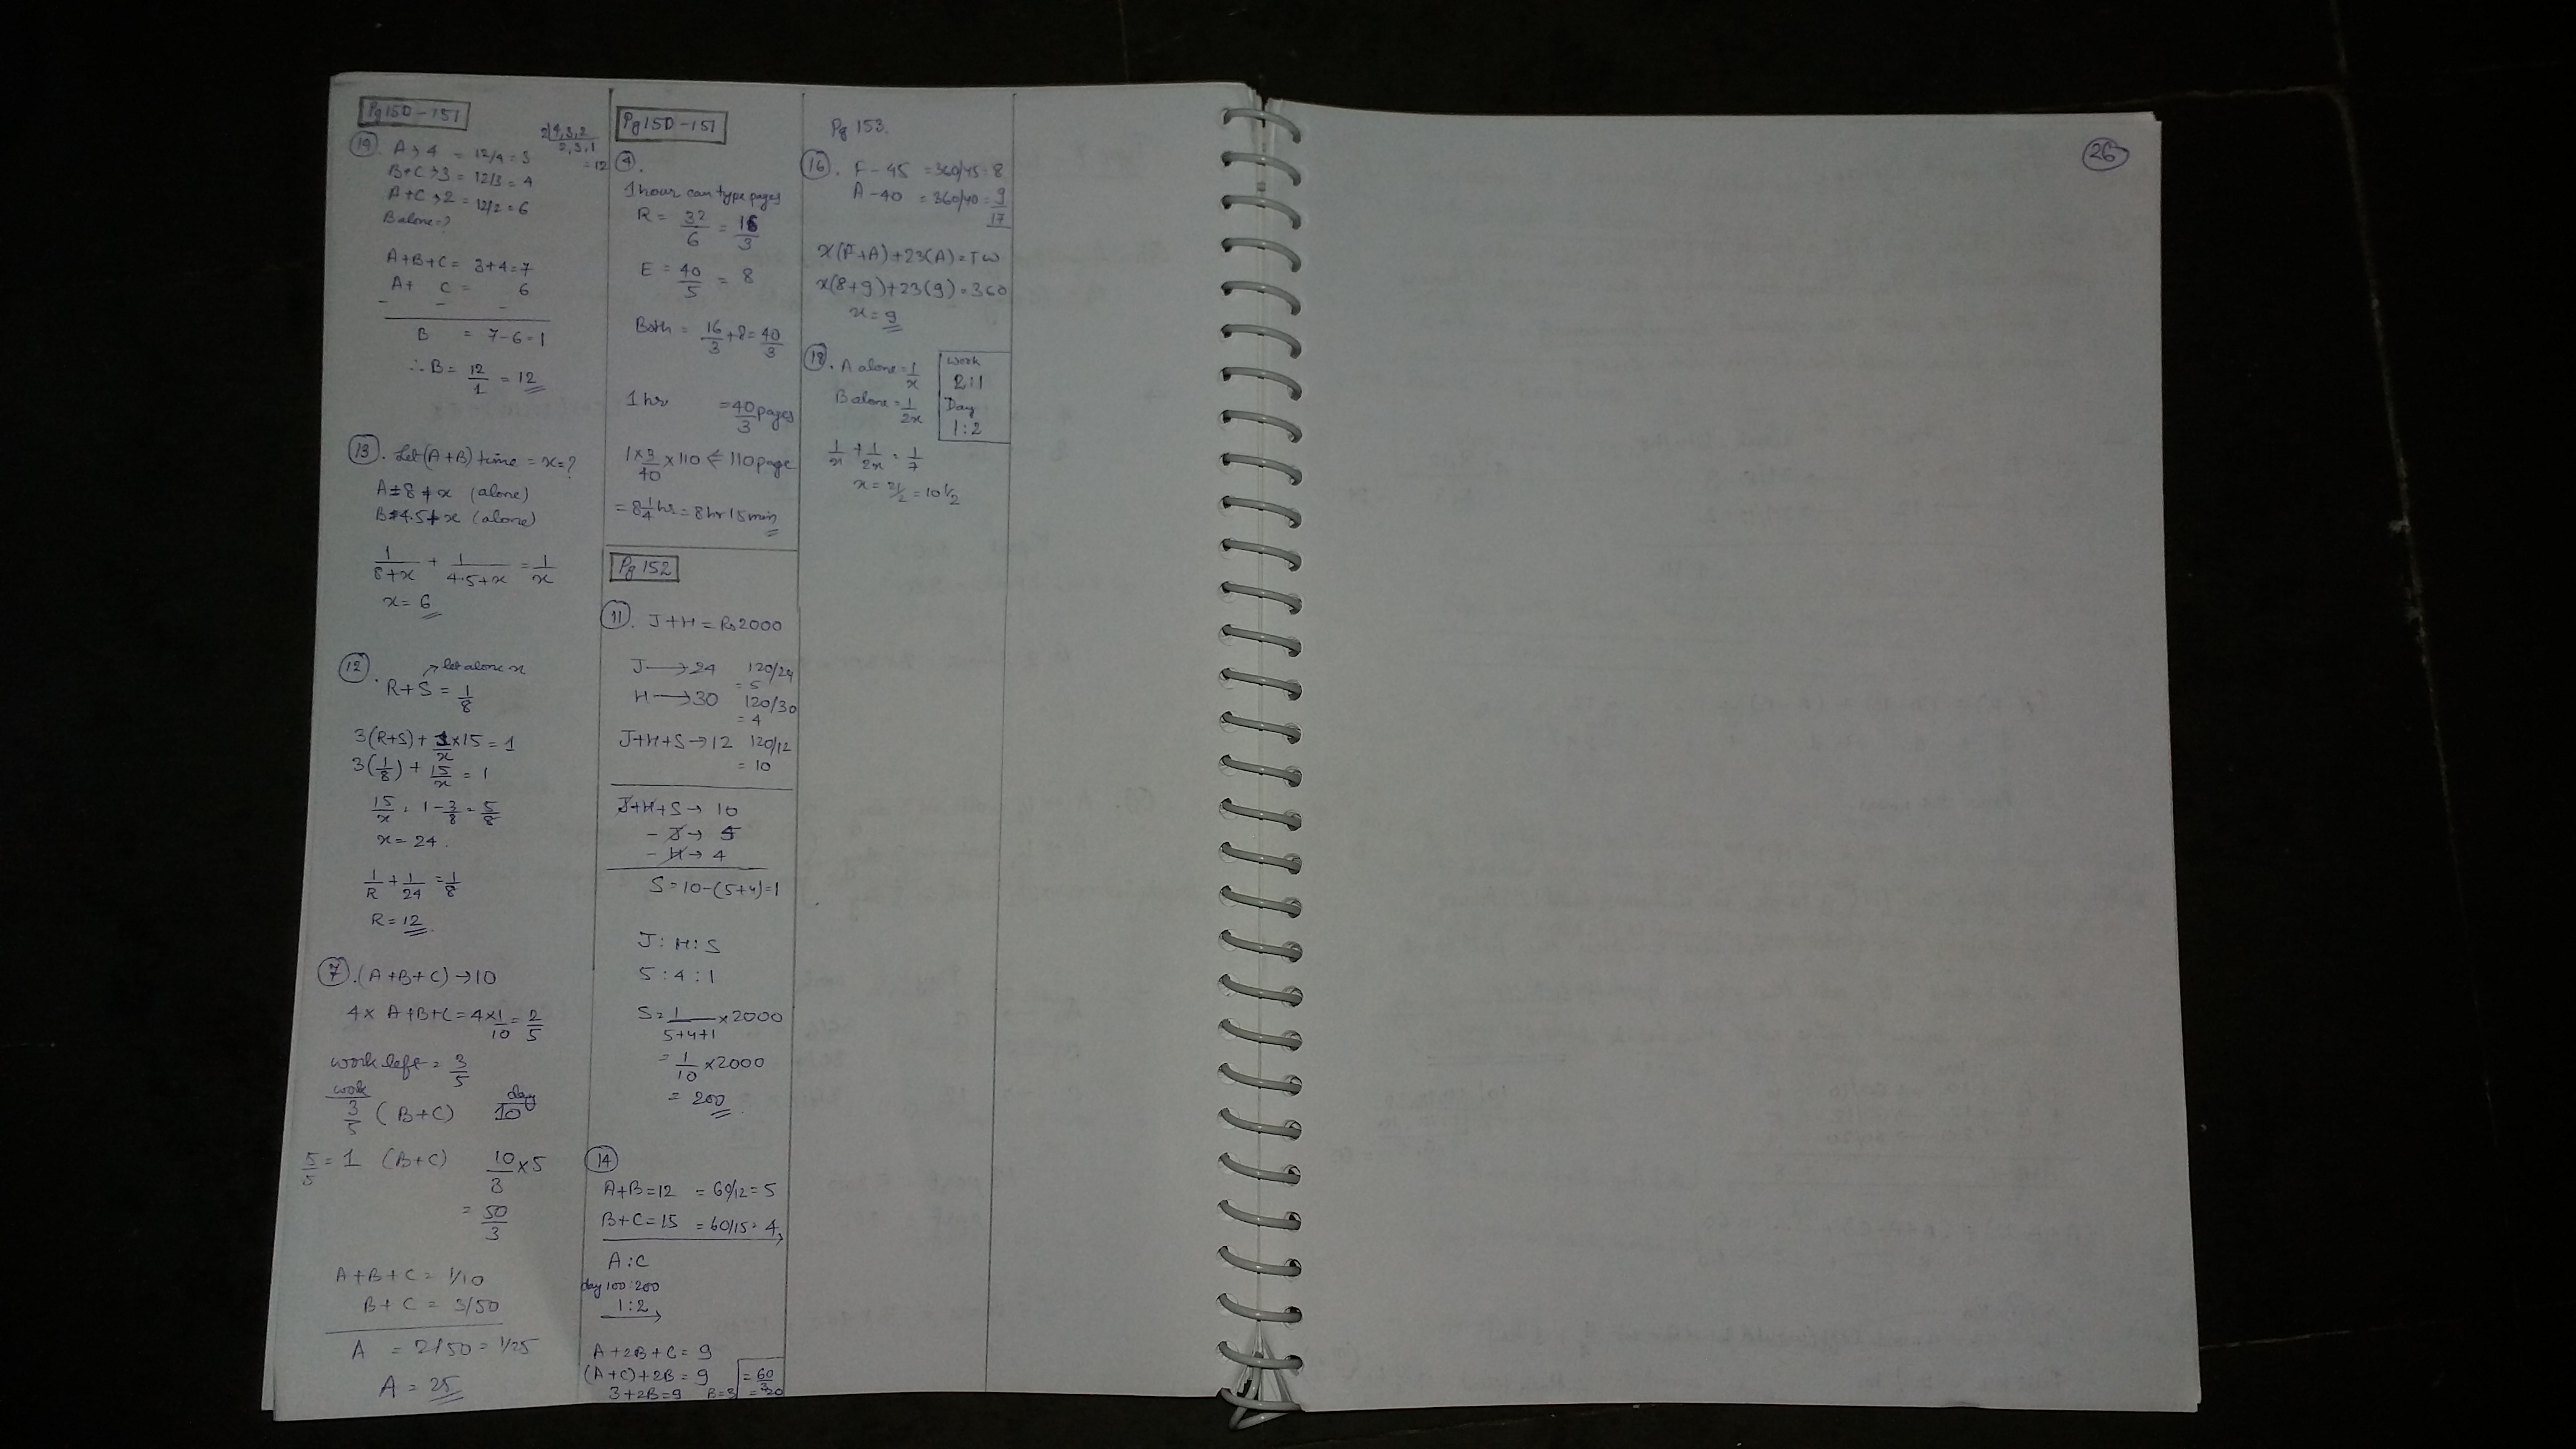 Pg 150-151
19. A→4 = 12/4 = 3
2|4,3,2
2,3,1
= 12
B+C→3 = 12/3 = 4
A+C→2 = 12/2 = 6
B alone = ?
A+B+C = 3+4=7
A+ C = 6
- - -
B = 7-6=1
∴ B = 12/1 = 12
13. Let (A+B) time = x = ?
A=8+x (alone)
B=4.5+x (alone)
1/(8+x) + 1/(4.5+x) = 1/x
x = 6
12. → let alone x
R+S = 1/8
3(R+S) + 1/x × 15 = 1
3(1/8) + 15/x = 1
15/x = 1 - 3/8 = 5/8
x = 24.
1/R + 1/24 = 1/8
R = 12
7. (A+B+C) → 10
4 x A+B+C = 4 x 1/10 = 2/5
work left = 3/5
work day
3/5 (B+C) 10
5/5 = 1 (B+C) 10/3 x 5
= 50/3
A+B+C = 1/10
B+C = 3/50
A = 2/50 = 1/25
A = 25
Pg 150-151
4.
1 hour can type pages
R = 32/6 = 16/3
E = 40/5 = 8
Both = 16/3 + 8 = 40/3
1 hr = 40/3 pages
1 x 3/40 x 110 ⇐ 110 page
= 8 1/4 hr = 8 hr 15 min
Pg 152
11. J+H = Rs 2000
J → 24 120/24
= 5
H → 30 120/30
= 4
J+H+S → 12 120/12
= 10
J+H+S → 10
- J → 5
- H → 4
S = 10-(5+4)=1
J : H : S
5 : 4 : 1
S = 1/(5+4+1) x 2000
= 1/10 x 2000
= 200
14
A+B = 12 = 60/12 = 5
B+C = 15 = 60/15 = 4
A : C
day 100:200
1:2
A+2B+C = 9
(A+C)+2B = 9 = 60/3
3+2B=9 B=3 = 20
Pg 153.
16. F - 45 = 360/45 = 8
A - 40 = 360/40 = 9
17
x(F+A)+23(A) = TW
x(8+9)+23(9) = 360
x = 9
18. A alone = 1/x
Work
2:1
B alone = 1/2x
Day
1:2
1/x + 1/2x = 1/7
x = 21/2 = 10 1/2
26